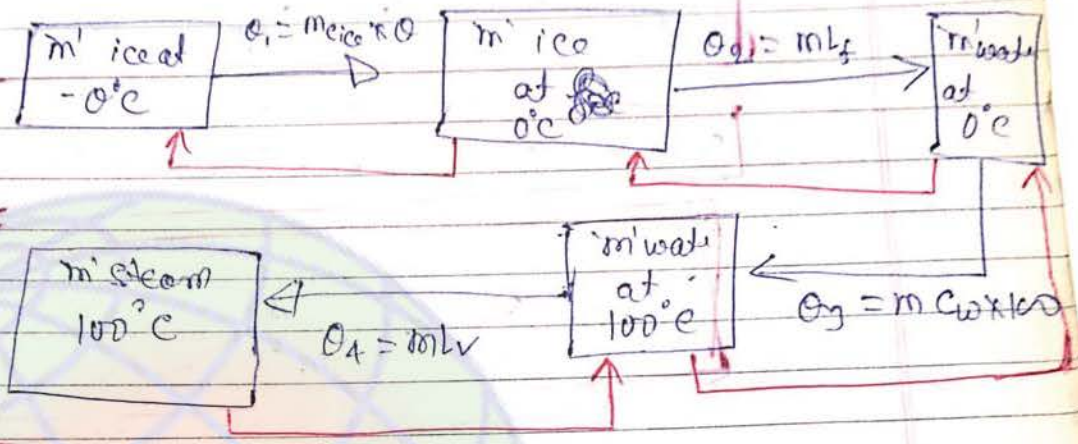 m' ice at
-θ°C
Q₁ = mCice × θ
m' ice
at
0°C
Q₂ = mLf
m' wate
at
0°C
Q₃ = m Cw×100
m' wate
at
100°C
Q₄ = mLv
m' steam
100°C